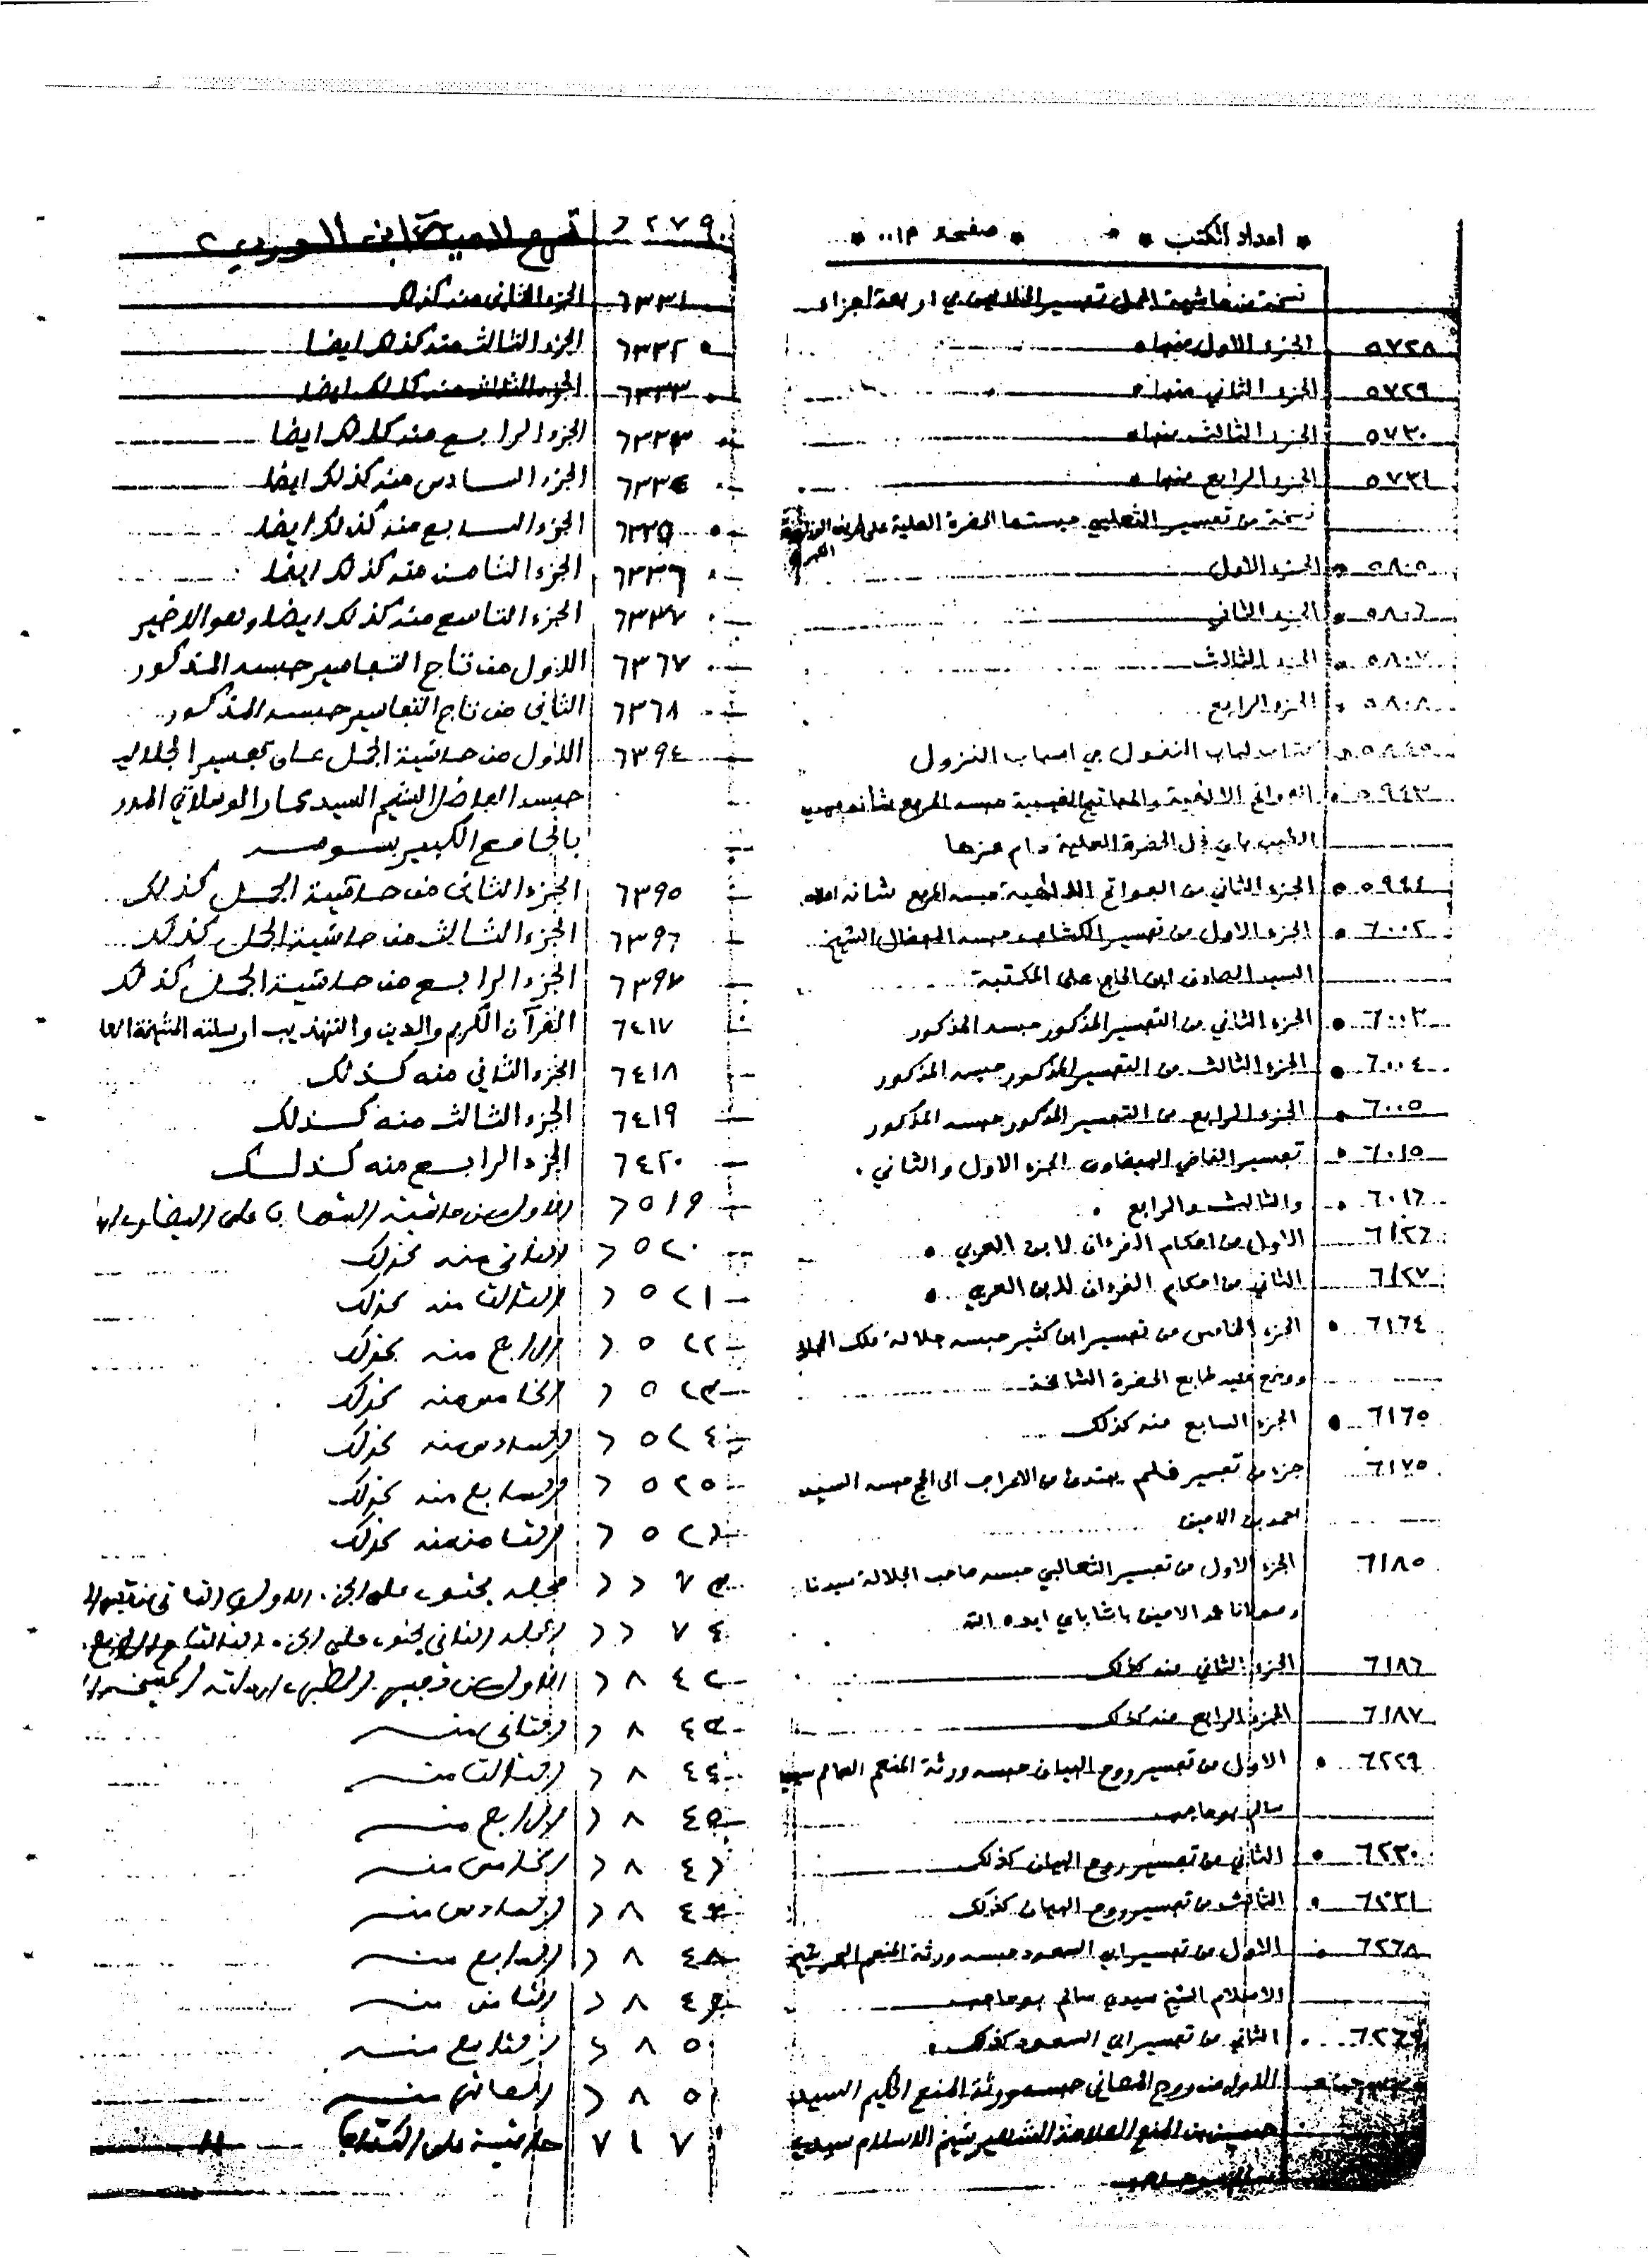 * اعداد الكتب * * صفحة ١٣٠٠ *
نسخة من حاشية الجمل تفسير الجلالين في اربعة اجزاء
٥٧٢٨ الجزء الاول منها
٥٧٢٩ الجزء الثاني منها
٥٧٣٠ الجزء الثالث منها
٥٧٣١ الجزء الرابع منها
نسخة من تفسير الثعلبي حبستها الحضرة العلية على
٥٨٠٥ الجزء الاول
٥٨٠٦ الجزء الثاني
٥٨٠٧ الجزء الثالث
٥٨٠٨ الجزء الرابع
٥٨٤٥ كتاب لباب النقول في اسباب النزول
٥٩٤٣ الفواتح الالهية والمفاتح الغيبية حبسه المرفع شأنه
الطيب باي نجل الحضرة العلية دام عزها
٥٩٤٤ الجزء الثاني من الفواتح الالهية حبسه المرفع شانه اعلاه
٦٠٠٢ الجزء الاول من تفسير الكشاف حبسه المفضال الشيخ
السيد الصادق ابن الحاج على المكتبة
٦٠٠٣ الجزء الثاني من التفسير المذكور حبسه المذكور
٦٠٠٤ الجزء الثالث من التفسير المذكور حبسه المذكور
٦٠٠٥ الجزء الرابع من التفسير المذكور حبسه المذكور
٦٠١٥ تفسير القاضي البيضاوي الجزء الاول والثاني
٦٠١٦ والثالث والرابع
٦١٢٦ الاول من احكام القرءان لابن العربي
٦١٢٧ الثاني من احكام القرءان لابن العربي
٦١٦٤ الجزء الخامس من تفسير ابن كثير حبسه جلالة ملك
ووضع عليه طابع الحضرة الشامخة
٦١٦٥ الجزء السابع منه كذلك
٦١٧٥ جزء من تفسير قلم يبتدئ من الاعراف الى الحج حبسه السيد
احمد بن الامين
٦١٨٥ الجزء الاول من تفسير الثعالبي حبسه صاحب الجلالة سيدنا
ومولانا محمد الامين باشا باي ايده الله
٦١٨٦ الجزء الثاني منه كذلك
٦١٨٧ الجزء الرابع منه كذلك
٦٢٢٩ الاول من تفسير روح البيان حبسه ورثة المنعم العام سيدي
سالم بوحاجب
٦٢٣٠ الثاني من تفسير روح البيان كذلك
٦٢٣١ الثالث من تفسير روح البيان كذلك
٦٢٦٨ الاول من تفسير ابي السعود حبسه ورثة المنعم شيخ
الاسلام الشيخ سيدي سالم بوحاجب
٦٢٦٩ الثاني من تفسير ابي السعود كذلك
الاول من روح المعاني حبسه ورثة المنعم الحكيم السيد
حسين بن المنعم العلامة الشهير شيخ الاسلام سيدي
سالم بوحاجب
٦٢٧٩ ابن العربي
٦٣٣١ الجزء الثاني منه كذلك
٦٣٣٢ الجزء الثالث منه كذلك ايضا
٦٣٣٣ الجزء الثالث منه كذلك ايضا
٦٣٣٣ الجزء الرابع منه كذلك ايضا
٦٣٣٤ الجزء السادس منه كذلك ايضا
٦٣٣٥ الجزء السابع منه كذلك ايضا
٦٣٣٦ الجزء الثامن منه كذلك ايضا
٦٣٣٧ الجزء التاسع منه كذلك ايضا وهو الاخير
٦٣٦٧ الاول من تاج التفاسير حبسه المذكور
٦٣٦٨ الثاني من تاج التفاسير حبسه المذكور
٦٣٩٤ الاول من حاشية الجمل على تفسير الجلالين
حبسه الفاضل الشيخ السيد عمار الوسلاتي المدرس
بالجامع الكبير بسوسه
٦٣٩٥ الجزء الثاني من حاشية الجمل كذلك
٦٣٩٦ الجزء الثالث من حاشية الجمل كذلك
٦٣٩٧ الجزء الرابع من حاشية الجمل كذلك
٦٤١٧ القرآن الكريم والدين والتهذيب ارسلته المشيخة
٦٤١٨ الجزء الثاني منه كذلك
٦٤١٩ الجزء الثالث منه كذلك
٦٤٢٠ الجزء الرابع منه كذلك
٦٥١٩ الاول من حاشية الشهاب على البيضاوي
٦٥٢٠ الثاني منه كذلك
٦٥٢١ الثالث منه كذلك
٦٥٢٢ الرابع منه كذلك
٦٥٢٣ الخامس منه كذلك
٦٥٢٤ السادس منه كذلك
٦٥٢٥ السابع منه كذلك
٦٥٢٦ الثامن منه كذلك
٦٦٧٣ مجلد يحتوي على الجزء الاول والثاني من
٦٦٧٤ المجلد الثاني يحتوي على الجزء الثالث والرابع
٦٨٤٢ الاول من تفسير الطبري
٦٨٤٣ الثاني منه
٦٨٤٤ الثالث منه
٦٨٤٥ الرابع منه
٦٨٤٦ الخامس منه
٦٨٤٧ السادس منه
٦٨٤٨ السابع منه
٦٨٤٩ الثامن منه
٦٨٥٠ التاسع منه
٦٨٥١ العاشر منه
٧١٧ حاشية على الكشاف